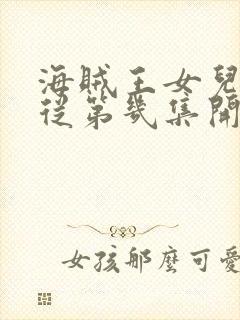 海賊王女兒
從第幾集開
女孩那麼可愛